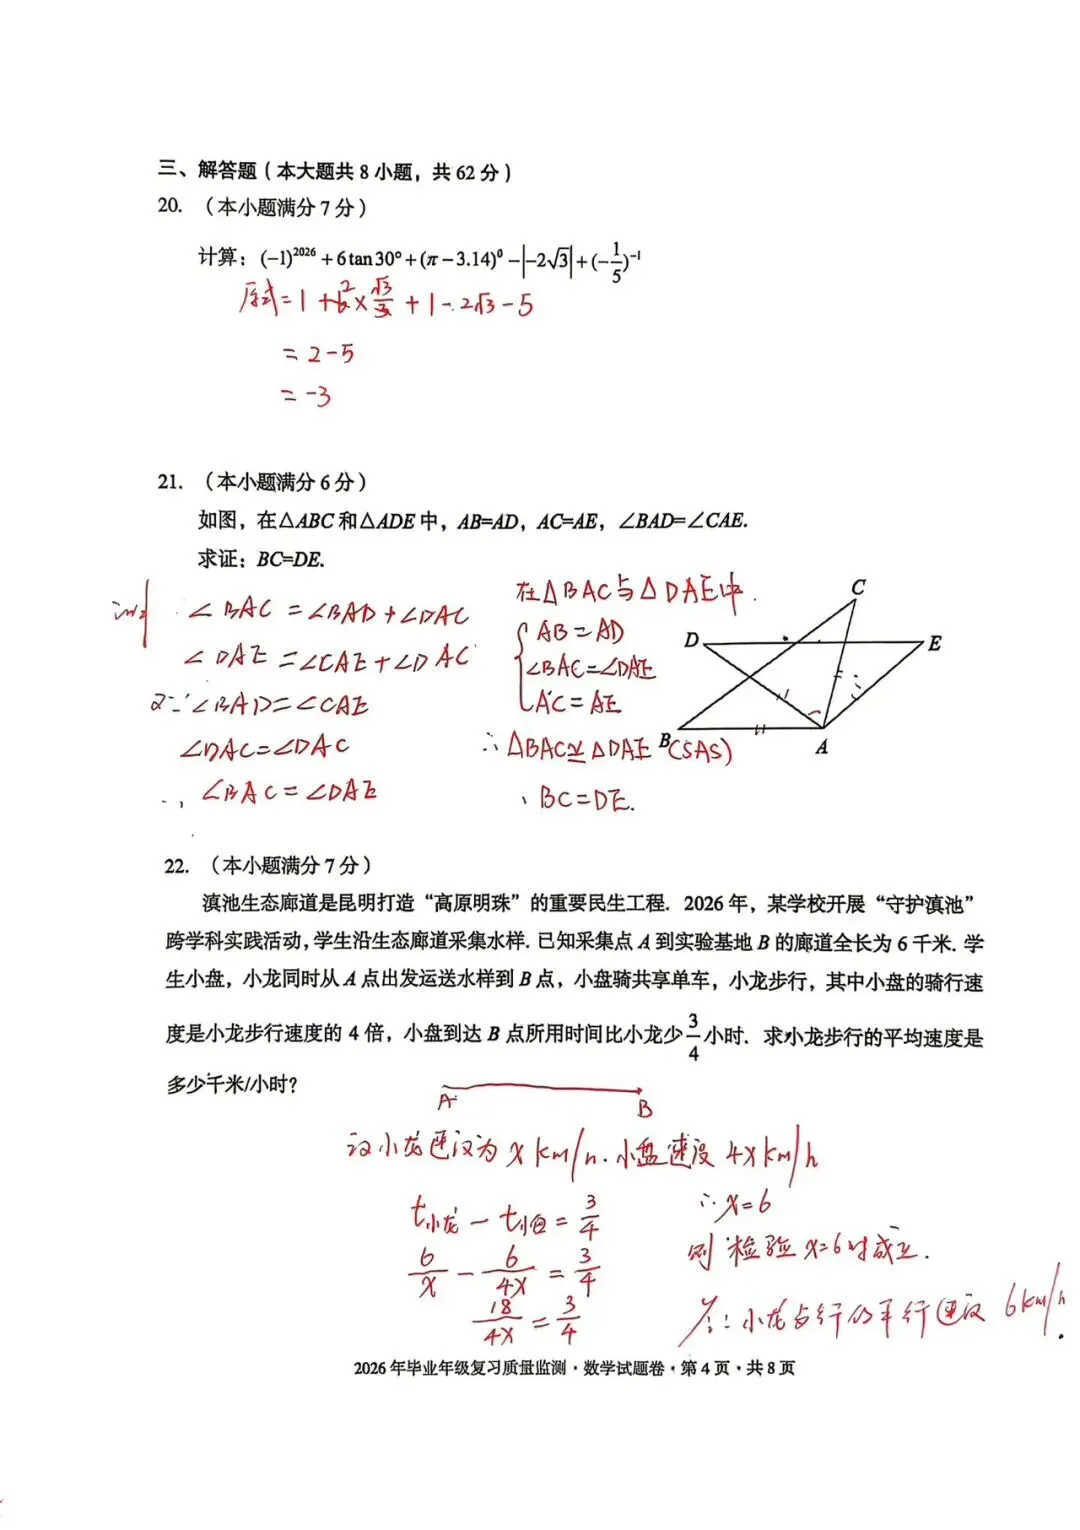 三、解答题（本大题共 8 小题，共 62 分）
20. （本小题满分 7 分）
计算：(−1)²⁰²⁶ + 6 tan 30° + (π − 3.14)⁰ − |−2√3| + (−1/5)⁻¹
原式 = 1 + 6² × √3/3 + 1 − 2√3 − 5
= 2 − 5
= −3
21. （本小题满分 6 分）
如图，在△ABC 和△ADE 中，AB=AD，AC=AE，∠BAD=∠CAE.
求证：BC=DE.
∠BAC = ∠BAD + ∠DAC
∠DAE = ∠CAE + ∠DAC
又∵ ∠BAD = ∠CAE
∠DAC = ∠DAC
∴ ∠BAC = ∠DAE
在△BAC与△DAE中.
AB = AD
∠BAC = ∠DAE
AC = AE
∴ △BAC ≌ △DAE (SAS)
∴ BC = DE.
C
D
E
B
A
22. （本小题满分 7 分）
滇池生态廊道是昆明打造“高原明珠”的重要民生工程. 2026 年，某学校开展“守护滇池”
跨学科实践活动，学生沿生态廊道采集水样. 已知采集点 A 到实验基地 B 的廊道全长为 6 千米. 学
生小盘，小龙同时从 A 点出发运送水样到 B 点，小盘骑共享单车，小龙步行，其中小盘的骑行速
度是小龙步行速度的 4 倍，小盘到达 B 点所用时间比小龙少 3/4 小时. 求小龙步行的平均速度是
多少千米/小时？
A
B
设小龙速度为 x km/h. 小盘速度 4x km/h
t小龙 − t小白 = 3/4
6/x − 6/4x = 3/4
18/4x = 3/4
∴ x = 6
则 检验 x=6时成立.
答：小龙步行的平行速度 6km/h.
2026 年毕业年级复习质量监测 · 数学试题卷 · 第 4 页 · 共 8 页